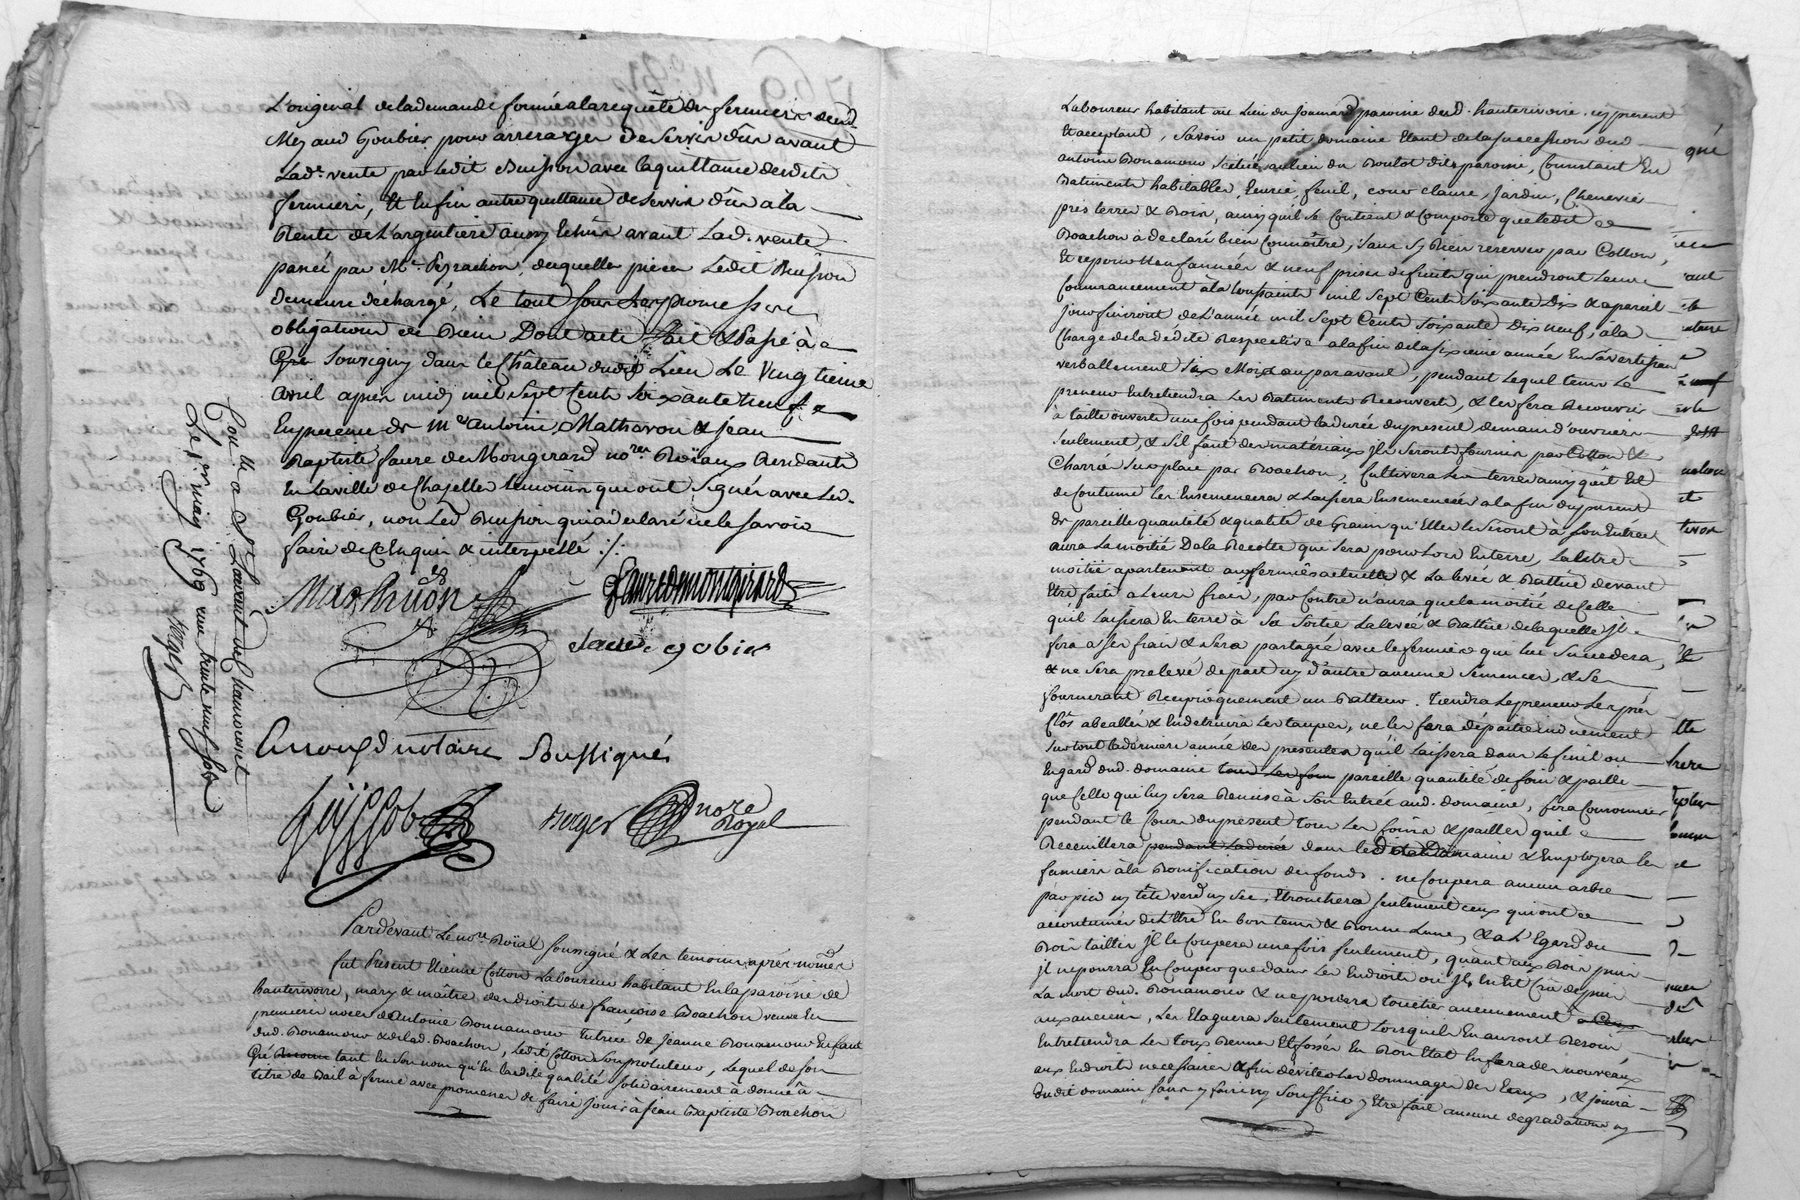 L'original de la demande formée a la requête du fermier dud.
Mez aud Goubier pour arrerages de servis dûs avant
Lad. vente par Ledit Buisson avec la quittance desdits
fermiers, Et Enfin autre quittance de servis dûs a la
Rente de L'argentiere aussy Echûs avant Lad. vente
passée par Mr. Peyrachon, desquelles pieces Ledit Buisson
demeure déchargé, Le tout sous Les promesses
obligations de Biens Dont acte Fait & Passé à
soussigny dans le Château dudit Lieu Le Vingtieme
avril apres midy mil Sept Cents soixante neuf
En presence de Mre antoine Mathevon & jean
Baptiste faure de Mongirard nores Roïaux Residants
En la ville de Chazelles temoins qui ont Signés avec Led.
Goubier, non Led Buisson qui a declaré ne le savoir
faire de ce Enquis & interpellé ./.
Mathevon
fauredemontgirard
gobier
notaire Soussigné
Guÿssob
Berger nore Royal
Conllé a St. Laurent de Chamousset
Le 1er may 1769 reçu trente neuf sols
Berger
Pardevant Le nore Roïal soussigné & Les temoins après nommés
fut Present Etienne Cotton Laboureur habitant En la paroisse de
hauterivoire, mary & maître des droits de françoise Boachon veuve En
premieres noces d'Antoine Bonnamour Tutrice de Jeanne Bonamour Enfant
dud. Bonamour & de lad. Boachon, Ledit Cotton son protuteur, Lequel de son
Gré tant En son nom qu'En lad. qualité solidairement à donné à
titre de Bail à ferme avec promesses de faire Jouir à Jean Baptiste Boachon
Laboureur habitant au Lieu du Joamard paroisse dud. hauterivoire, icy present
& acceptant, Savoir un petit domaine Etant de la succession dud
antoine Bonamour Scitué au lieu du Boulot dite paroisse, Consistant En
Batiments habitables, Ecurie, feuil, cour claure, Jardin, Cheneviere
prés terres & Bois, ainsy qu'il se Contient & Comporte que ledit
Boachon à declaré bien Connoître, sans s'y Rien reserver par Cotton,
Et ce pour neuf années & neuf prises de fruits qui prendront Leur
Commencement à la toussaints mil Sept Cents soixante Dix & a pareil
jour finiront de L'année mil Sept Cents soixante Dix neuf, à la
Charge de la dédite Respective a la fin de la sixieme année En s'avertissant
verballement Six Mois auparavant, pendant Lequel tems Le
preneur Entretiendra Les Batiments Recouverts, & les fera Recouvrir
à taille ouverte une fois pendant la durée du present, de main d'ouvriers
seulement, & s'il faut des matériaux Ils seront fournis par Cotton &
Charriés sur place par Boachon, Cultivera Les terres ainsy qu'il Est
de Coutume Les Ensemencera & Laissera Ensemencées a la fin du present
de pareille quantité & qualité de Grains qu'Elles Le seront à son Entrée
aura La moitié de la Recolte qui sera pour Lors En terre, L'autre
moitié apartenant aux fermiers actuels & La levée & Battue devant
Etre faite a Leurs frais, par Contre n'aura que la moitié de Celle
qu'il Laissera En terre à Sa Sortie La levée & Battue de laquelle Il
fera a ses frais & sera partagée avec le fermier que lui Succedera,
& ne sera prelevé de part ny d'autre aucune semence, & se
fourniront Reciproquement un Batteur. Tiendra Le preneur Les prés
Clôs abeallés & En detruira Les taupes, ne Les fera dépaitre induement
surtout la derniere année des presentes qu'il Laissera dans Le feuil ou
hangard dud. domaine pareille quantité de foin & paille
que Celle qui luy sera Remise à Son Entrée aud. domaine, fera Consommer
pendant le Cours du present tous Les foins & pailles qu'il
Recueillera dans led. Domaine & Employera Les
fumiers à la Bonification du fonds. ne Coupera aucun arbre
par pied ny tête verd ny sec, Etrouchera seulement ceux qui ont
accoutumés de L'Etre En bon tems & Bonne Lune, & a L'Egard du
Bois taillis Il le Coupera une fois seulement, quant aux Bois pins
il ne pourra En Couper que dans Les Endroits ou Il En Est Crû depuis
La mort dud. Bonamour & ne pourra toucher aucunement
aux anciens, Les Elaguera seulement Lorsqu'ils En auront Besoin,
Entretiendra Les tous Rennes Et fossés En Bon Etat En fera de nouveaux
aux Endroits necessaires afin d'éviter Les dommages des Eaux, & jouira
dudit domaine sans y faire ny Souffrir y Etre fait aucune degradations ny